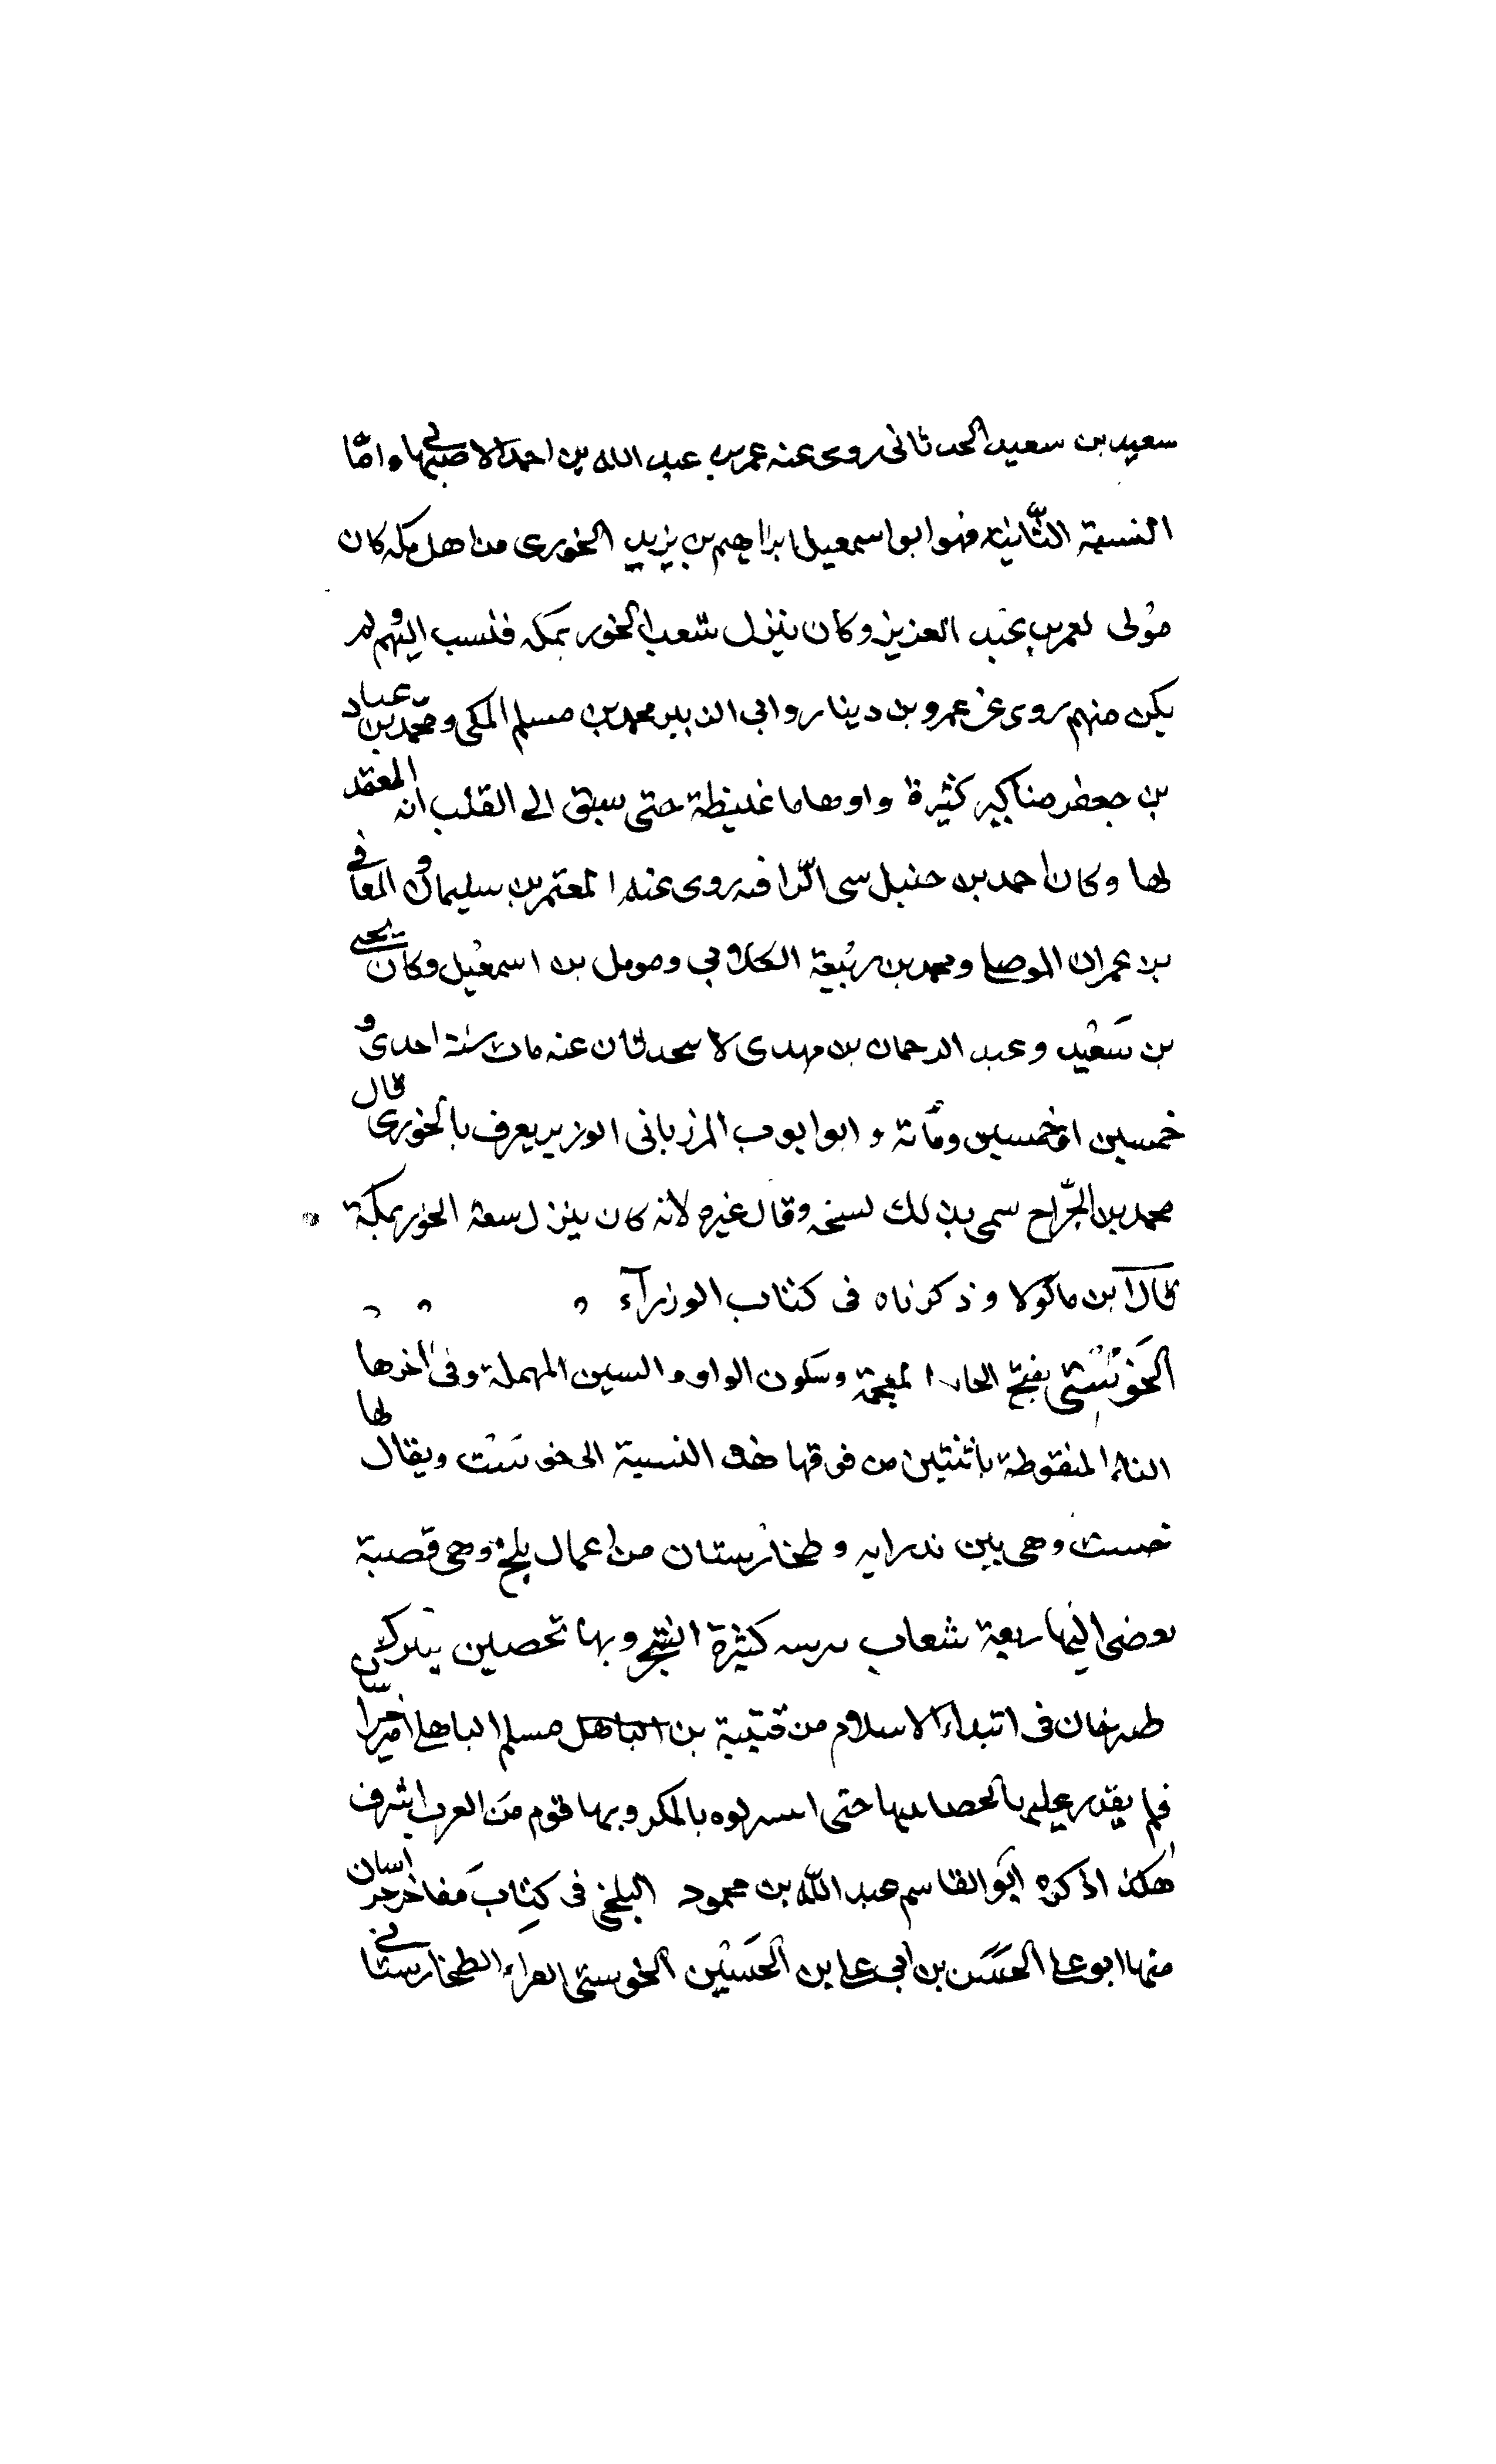 سعيد بن سعيد الحدثانى روى عنه عمر بن عبد الله بن احمد الاصبهانى واما
النسبة الثانية فهو ابو اسمعيل ابراهيم بن يزيد الخورى من اهل مكه كان
مولى لعمر بن عبد العزيز وكان ينزل شعب الخور بمكه فنسب اليهم ولم
يكن منهم روى عن عمرو بن دينار وابى الزبير محمد بن مسلم المكى ومحمد بن عباد
بن جعفر مناكير كثيرة واوهاما غليظة حتى سبق الى القلب انه المعتمد
لها وكان احمد بن حنبل سى الرا فيه روى عنه المعتمر بن سليمان و المعافى
بن عمران الموصلى ومحمد بن ربيعة الكلابى ومومل بن اسمعيل وكان يحيى
بن سعيد و عبد الرحمان بن مهدى لا يحدثان عنه مات سنة احدى و
خمسين او خمسين ومائة و ابو ايوب المرزبانى الوزير يعرف بالخورى قال
محمد بن الجراح سمى بذلك لسخه وقال غيره لانه كان ينزل سعه الخور بمكة
قال ابن ماكولا و ذكرناه فى كتاب الوزرآء
الخوستى بفتح الخاء المعجمة وسكون الواو والسين المهملة وفى اخرها
التاء المنقوطة باثنتين من فوقها هذه النسبة الى خوست ويقال لها
خست وهى بين ندرابه و طخارستان من اعمال بلخ وهى قصبة
يفضى اليها ربعة شعاب كثيرة الشجر وبها تحصين
طرخان فى ابتداء الاسلام من قتيبة بن الباهل مسلم الباهلى امير خراسان
فلم يقدر عليه حتى بالمكر وبها قوم من العرب اشرف
هكذا ذكره ابو القاسم عبد الله بن محمود البلخى فى كتاب مفاخر خراسان
منها ابو على الحسن بن ابى على بن الحسين الخوستى الطخارستانى